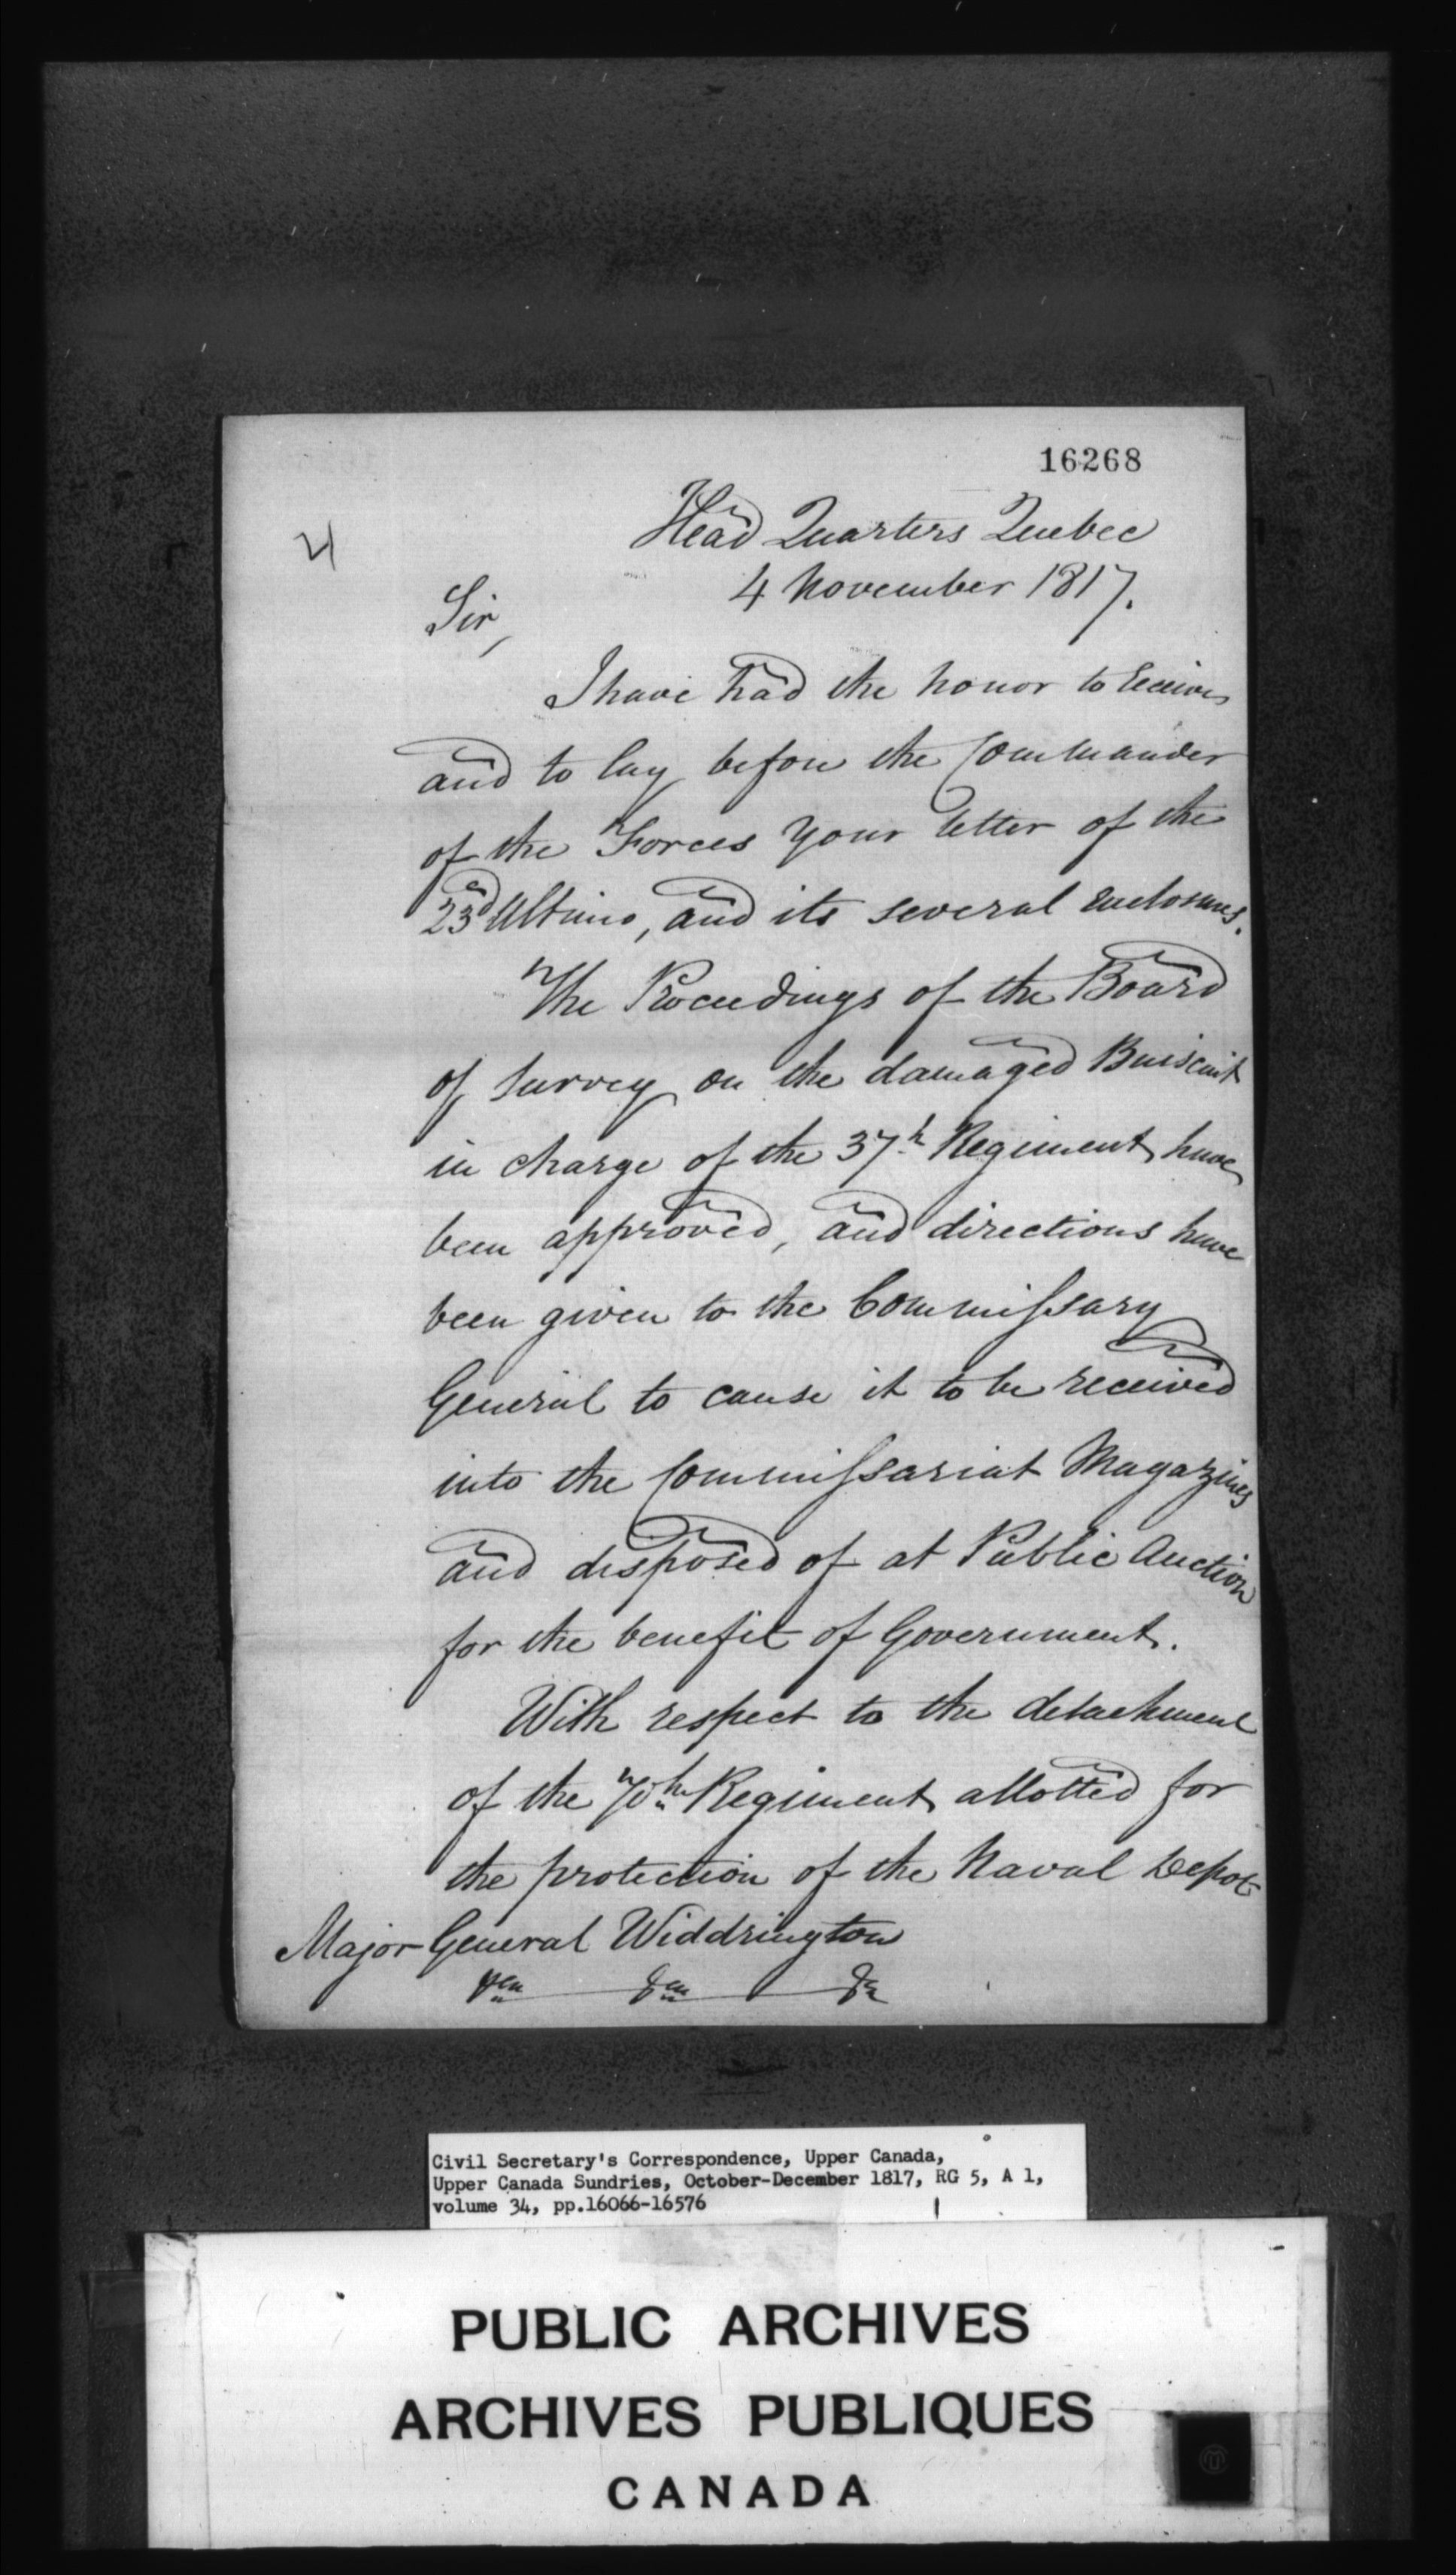 16268
4
Head Quarters Quebec
4 November 1817.
Sir,
I have had the honor to receive
and to lay before the Commander
of the Forces Your letter of the
23d Ultimo, and its several enclosures.
The Proceedings of the Board
of Survey on the damaged Buiscuit
in charge of the 37th Regiment have
been approved, and directions have
been given to the Commissary
General to cause it to be received
into the Commissariat Magazines
and disposed of at Public Auction
for the benefit of Government.
With respect to the detachment
of the 70th Regiment allotted for
the protection of the Naval Depot
Major General Widdrington
&ca &ca &c
Civil Secretary's Correspondence, Upper Canada,
Upper Canada Sundries, October-December 1817, RG 5, A 1,
volume 34, pp.16066-16576
PUBLIC ARCHIVES
ARCHIVES PUBLIQUES
CANADA